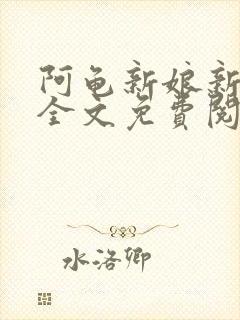 阿龟新娘新
全文免費閱
水洛卿